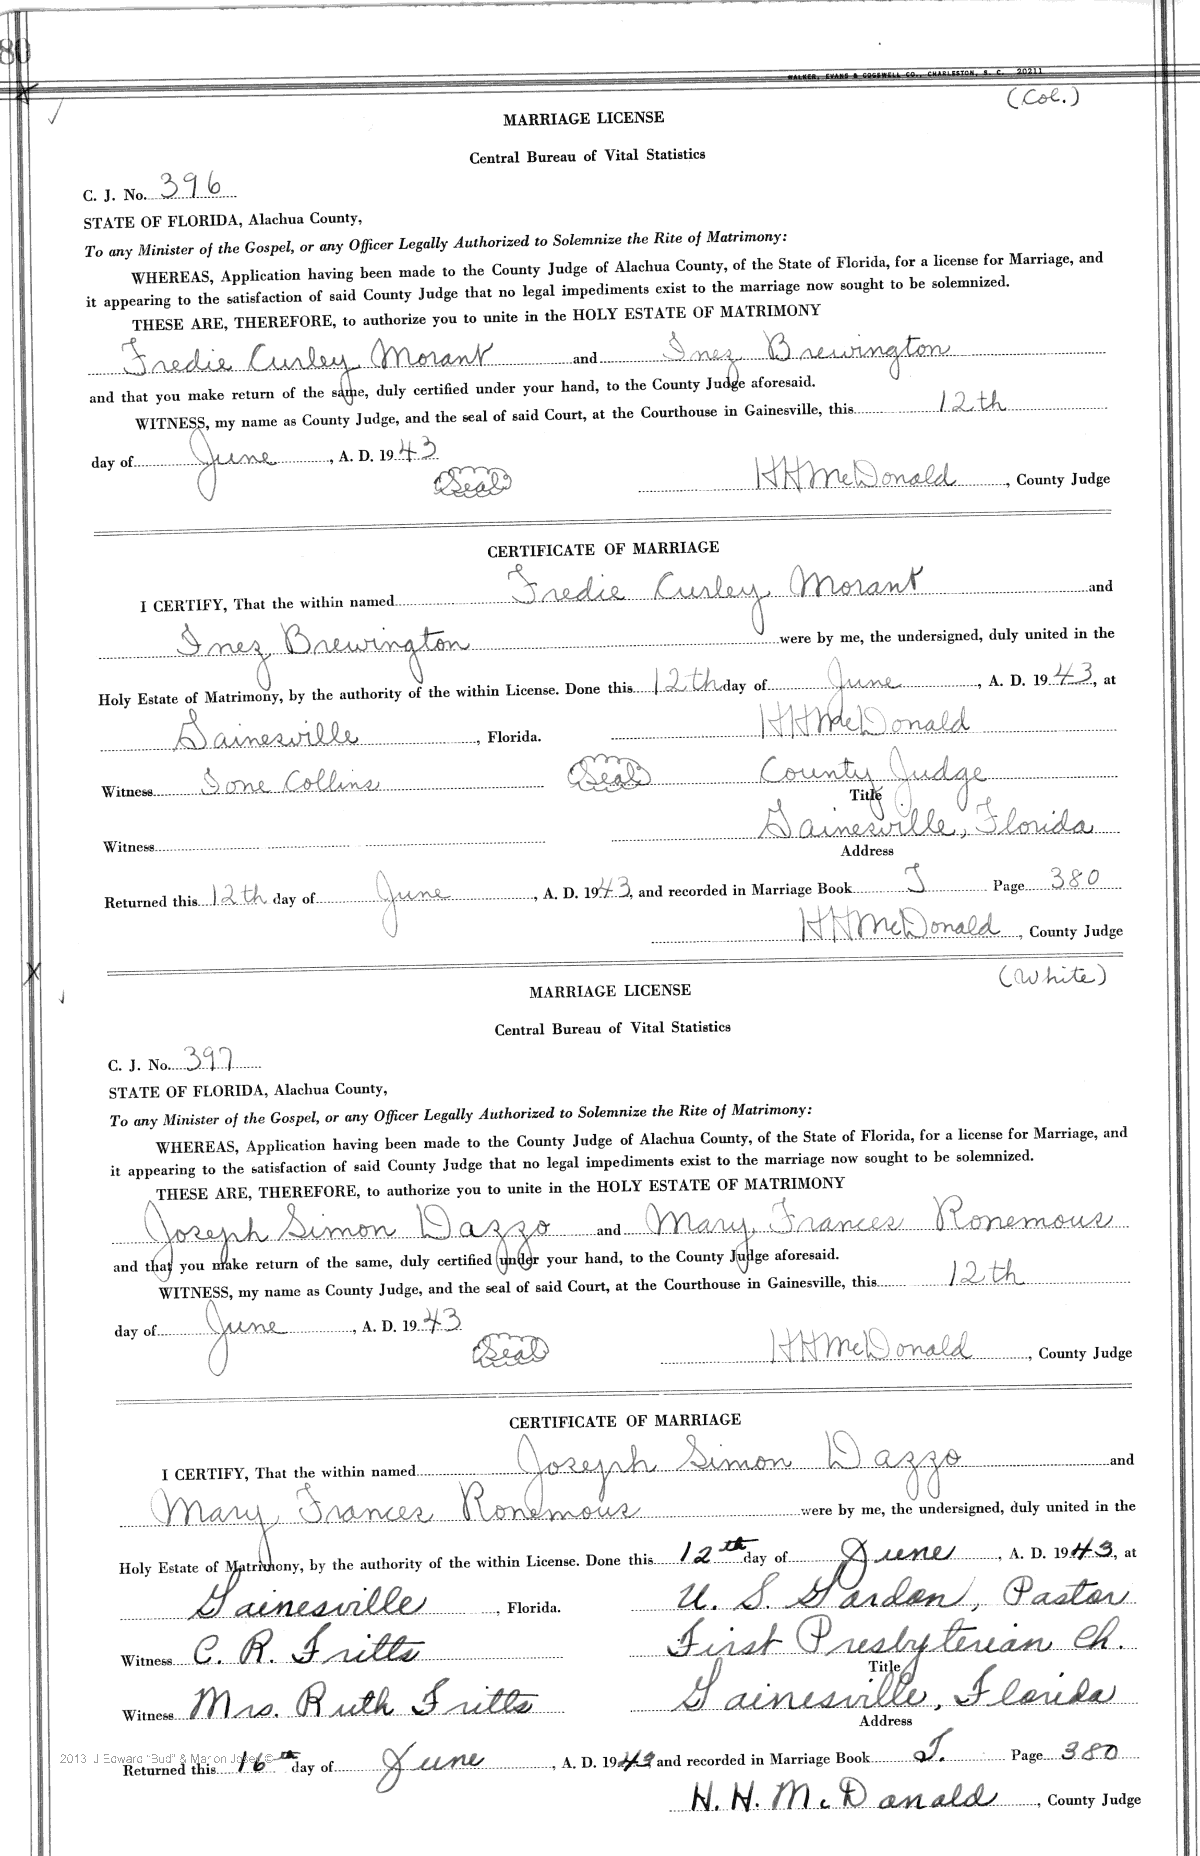 80
WALKER, EVANS & COGSWELL CO., CHARLESTON, S. C. 20211
(Col.)
MARRIAGE LICENSE
Central Bureau of Vital Statistics
C. J. No. 396
STATE OF FLORIDA, Alachua County,
To any Minister of the Gospel, or any Officer Legally Authorized to Solemnize the Rite of Matrimony:
WHEREAS, Application having been made to the County Judge of Alachua County, of the State of Florida, for a license for Marriage, and
it appearing to the satisfaction of said County Judge that no legal impediments exist to the marriage now sought to be solemnized.
THESE ARE, THEREFORE, to authorize you to unite in the HOLY ESTATE OF MATRIMONY
Fredie Curley Morant and Inez Brewington
and that you make return of the same, duly certified under your hand, to the County Judge aforesaid.
WITNESS, my name as County Judge, and the seal of said Court, at the Courthouse in Gainesville, this 12th
day of June, A. D. 1943
Seal HHMcDonald, County Judge
CERTIFICATE OF MARRIAGE
I CERTIFY, That the within named Fredie Curley Morant and
Inez Brewington were by me, the undersigned, duly united in the
Holy Estate of Matrimony, by the authority of the within License. Done this 12th day of June, A. D. 1943, at
Gainesville, Florida. HHMcDonald
Witness Ione Collins Seal County Judge
Title
Gainesville, Florida
Witness
Address
Returned this 12th day of June, A. D. 1943, and recorded in Marriage Book J Page 380
HHMcDonald, County Judge
(White)
MARRIAGE LICENSE
Central Bureau of Vital Statistics
C. J. No. 397
STATE OF FLORIDA, Alachua County,
To any Minister of the Gospel, or any Officer Legally Authorized to Solemnize the Rite of Matrimony:
WHEREAS, Application having been made to the County Judge of Alachua County, of the State of Florida, for a license for Marriage, and
it appearing to the satisfaction of said County Judge that no legal impediments exist to the marriage now sought to be solemnized.
THESE ARE, THEREFORE, to authorize you to unite in the HOLY ESTATE OF MATRIMONY
Joseph Simon Dazzo and Mary Frances Ronemous
and that you make return of the same, duly certified under your hand, to the County Judge aforesaid.
WITNESS, my name as County Judge, and the seal of said Court, at the Courthouse in Gainesville, this 12th
day of June, A. D. 1943
Seal HHMcDonald, County Judge
CERTIFICATE OF MARRIAGE
I CERTIFY, That the within named Joseph Simon Dazzo and
Mary Frances Ronemous were by me, the undersigned, duly united in the
Holy Estate of Matrimony, by the authority of the within License. Done this 12th day of June, A. D. 1943, at
Gainesville, Florida. U. S. Gordon, Pastor
Witness C. R. Fritts First Presbyterian Ch.
Title
Witness Mrs. Ruth Fritts Gainesville, Florida
Address
2013 J Edward "Bud" & Marion
Returned this 16th day of June, A. D. 1943 and recorded in Marriage Book J. Page 380
H. H. McDonald, County Judge